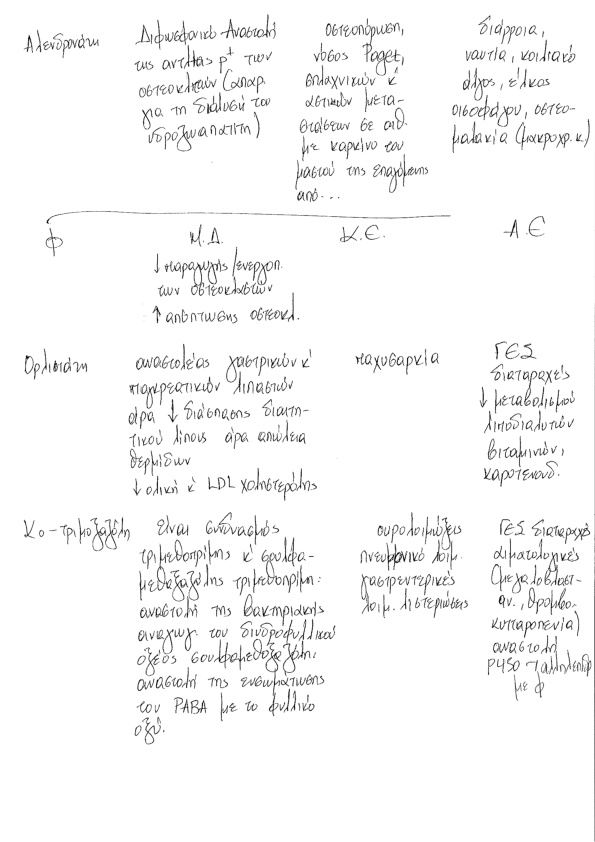 Αλενδρονάτη
Διφωσφονικό-Αναστολή
της αντλίας p+ των
οστεοκλαστών (απαρ.
για τη διάλυση του
υδροξυαπατίτη)
οστεοπόρωση,
νόσος Paget,
σπλαχνικών κ'
οστικών μετα-
στάσεων σε ασθ.
με καρκίνο του
μαστού της επαγόμενης
από...
διάρροια,
ναυτία, κοιλιακό
άλγος, έλκος
οισοφάγου, οστεο-
μαλακία (μακροχρ. κ.)
Φ
Μ.Δ.
Κ.Ε.
Α.Ε
↓ παραγωγής/ενεργοπ.
των οστεοκλαστών
↑ απόπτωσης οστεοκλ.
Ορλιστάτη
αναστολέας γαστρικών κ'
παγκρεατικών λιπασών
άρα ↓ διάσπασης διαιτη-
τικού λίπους άρα απώλεια
θερμίδων
↓ ολική κ' LDL χοληστερόλης
παχυσαρκία
ΓΕΣ
διαταραχές
↓ μεταβολισμού
λιποδιαλυτών
βιταμινών,
καροτενοειδ.
Κο-τριμοξαζόλη
είναι συνδυασμός
τριμεθοπρίμης κ' σουλφα-
μεθοξαζόλης τριμεθοπρίμη:
αναστολή της βακτηριακής
αναγωγ. του διυδροφυλλικού
οξέος σουλφαμεθοξαζόλη:
αναστολή της ενσωμάτωσης
του PABA με το φυλλικό
οξύ.
ουρολοιμώξεις
πνευμονικό λοιμ.
γαστρεντερικές
λοιμ. λιστεριώσεις
ΓΕΣ διαταραχές
αιματολογικές
(μεγαλοβλαστ.
αν., θρομβο-
κυτταροπενία)
αναστολή
P450 → αλληλεπιδρ
με φ